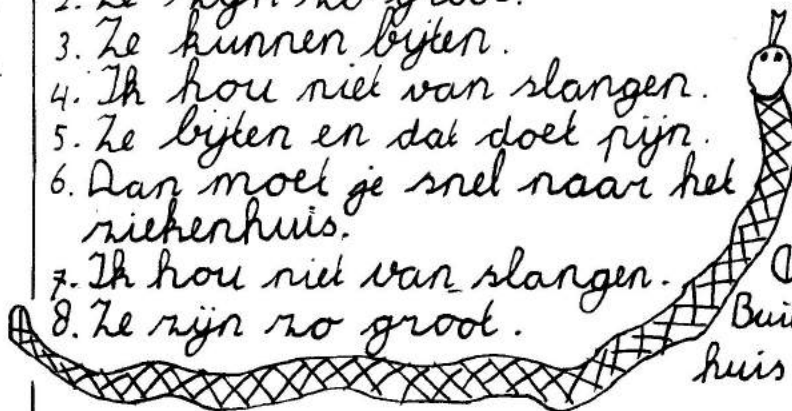 2. Ze zijn zo groot.
3. Ze kunnen bijten.
4. Ik hou niet van slangen.
5. Ze bijten en dat doet pijn.
6. Dan moet je snel naar het
ziekenhuis.
7. Ik hou niet van slangen.
8. Ze zijn zo groot.
huis